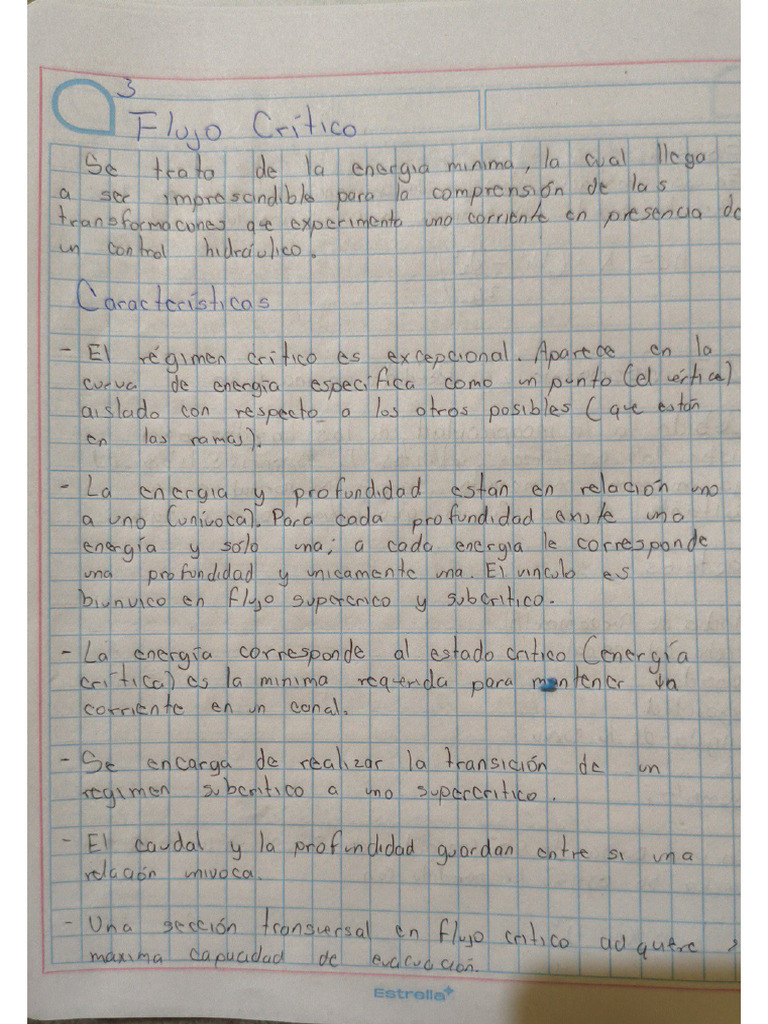 3
Flujo Crítico
Se trata de la energia minima, la cual llega
a ser imprescindible para la comprensión de las
transformaciones que experimenta una corriente en presencia de
un control hidráulico.
Características
- El régimen crítico es excepcional. Aparece en la
curva de energía específica como un punto (el vértice)
aislado con respecto a los otros posibles (que están
en las ramas).
- La energia y profundidad están en relación uno
a uno (unívoca). Para cada profundidad existe una
energía y solo una; a cada energia le corresponde
una profundidad y unicamente una. El vinculo es
biunivico en flujo supercrico y subcritico.
- La energía corresponde al estado critico (energía
crítica) es la minima requerida para mantener una
corriente en un canal.
- Se encarga de realizar la transición de un
regimen subcritico a uno supercritico.
- El caudal y la profundidad guardan entre si una
relación univoca.
- Una sección transversal en flujo critico adquiere
maxima capacidad de evacuación.
Estrella